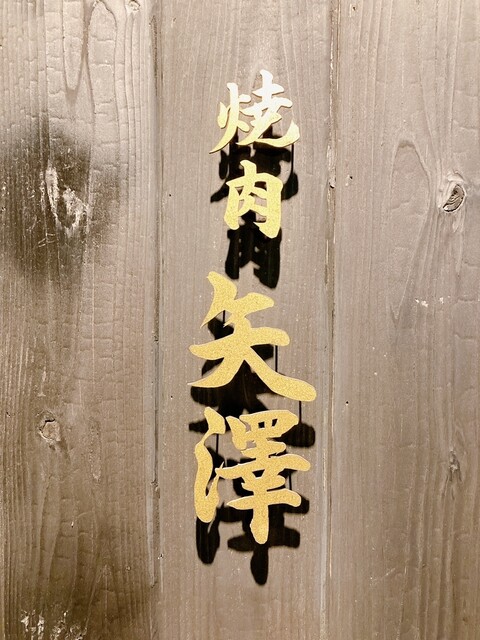 焼肉矢澤